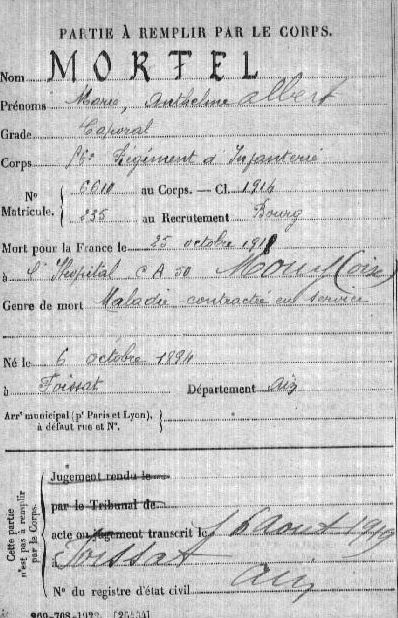 PARTIE À REMPLIR PAR LE CORPS.
Nom MORTEL
Prénoms Marie, Anthelme Albert
Grade Caporal
Corps Régiment d'Infanterie
N° Matricule. 6610 au Corps. — Cl. 1914
235 au Recrutement Bourg
Mort pour la France le 25 octobre 1918
à l'Hopital C A 50 Mouy (oise)
Genre de mort Maladie contractée en service
Né le 6 octobre 1894
à Foissiat Département Ain
Arrt municipal (pr Paris et Lyon), à défaut rue et N°.
Cette partie n'est pas à remplir par le Corps.
Jugement rendu le
par le Tribunal de
acte ou jugement transcrit le 6 Aout 1919
à Foissiat
Ain
N° du registre d'état civil